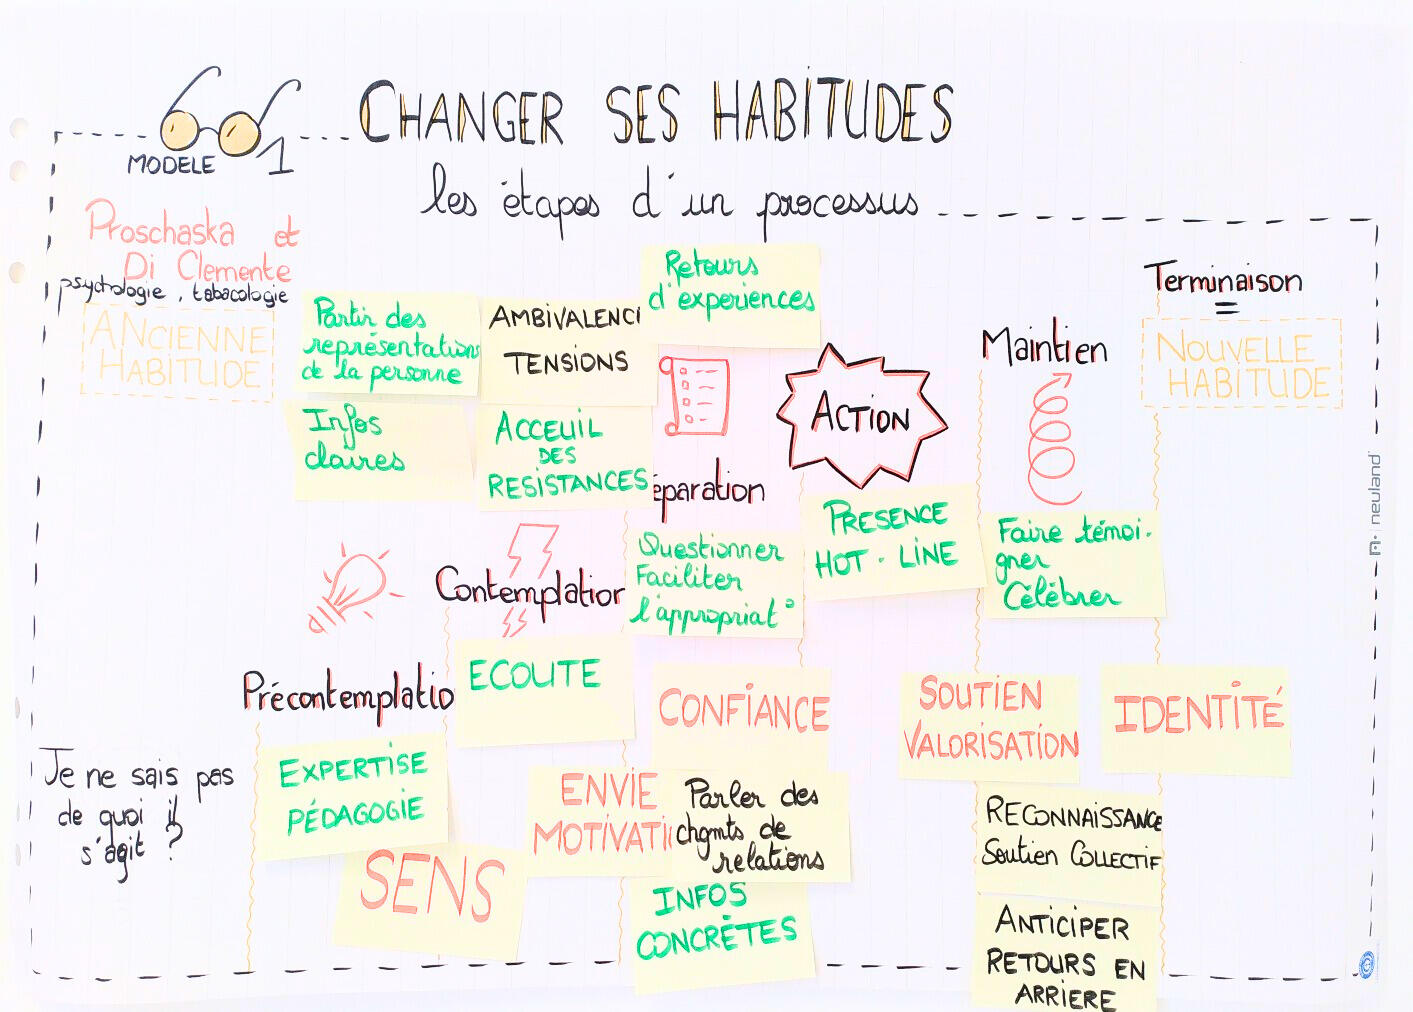 CHANGER SES HABITUDES
MODELE 1
les étapes d'un processus
Proschaska et
Di Clemente
psychologie, tabacologie
ANCIENNE
HABITUDE
Partir des
représentations
de la personne
Infos
claires
AMBIVALENC
TENSIONS
ACCEUIL
DES
RESISTANCES
Retours
d'experiences
éparation
ACTION
Maintien
Terminaison
=
NOUVELLE
HABITUDE
Questionner
Faciliter
l'appropriat°
PRESENCE
HOT-LINE
Faire témoi-
gner
Célébrer
Contemplation
ECOUTE
Précontemplatio
EXPERTISE
PÉDAGOGIE
Je ne sais pas
de quoi il
s'agit ?
SENS
ENVIE
MOTIVATI
CONFIANCE
Parler des
chgmts de
relations
INFOS
CONCRÈTES
SOUTIEN
VALORISATION
IDENTITÉ
RECONNAISSANCE
Soutien COLLECTIF
ANTICIPER
RETOURS EN
ARRIERE
neuland